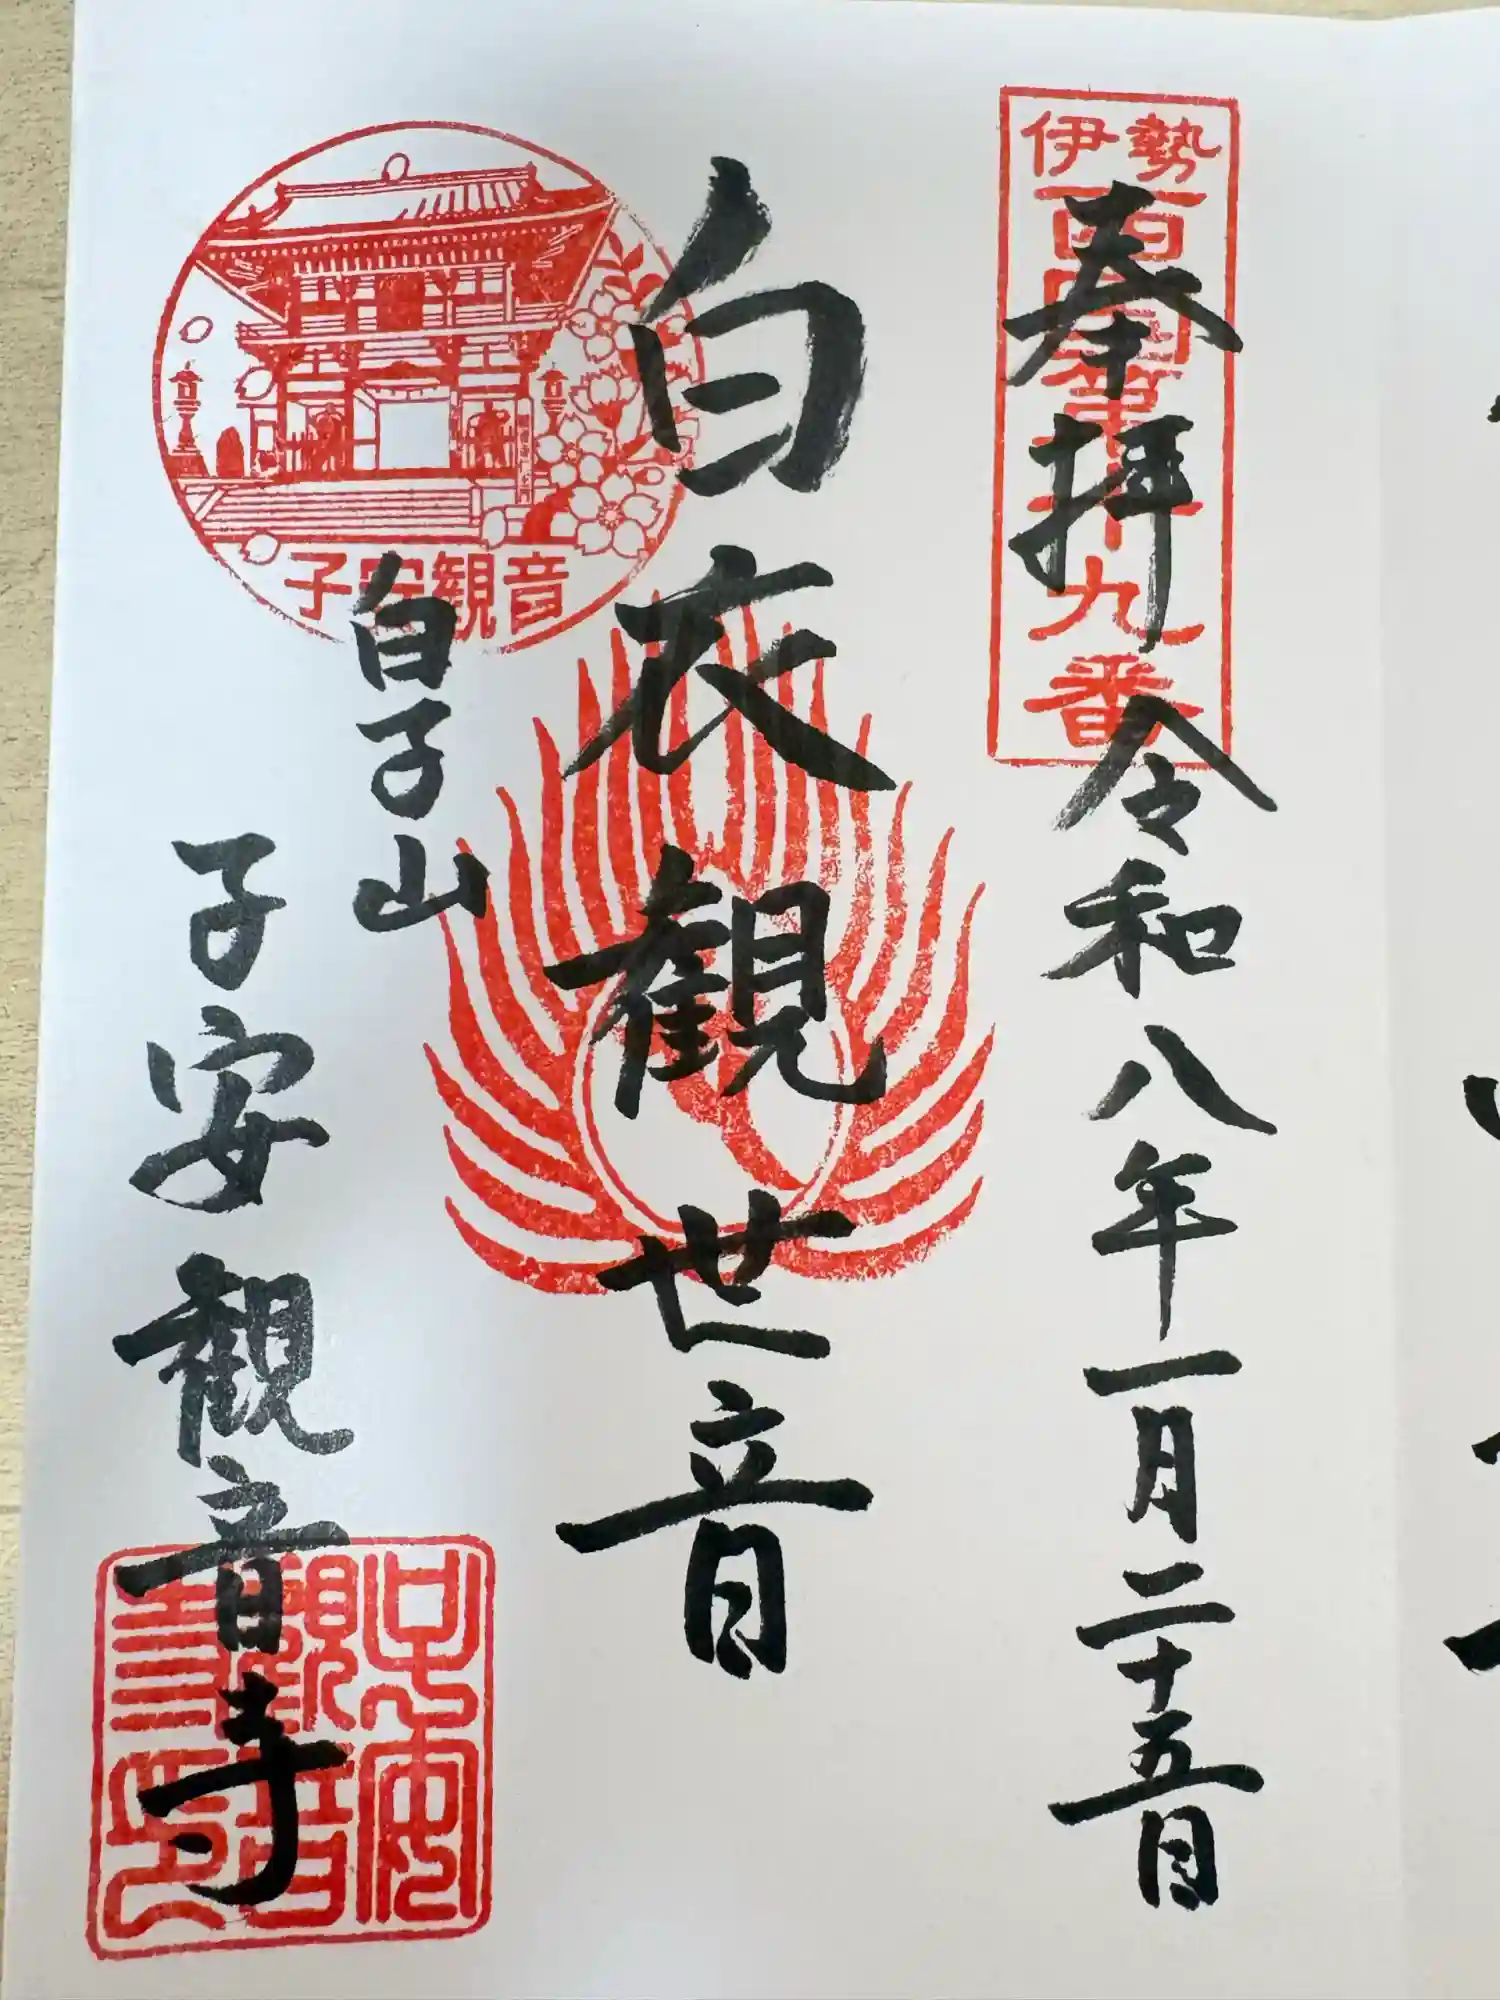 伊勢
西国第十九番
奉拝 令和八年一月二十五日
白衣観世音
子安観音
白子山
子安観音寺
子安観音寺印